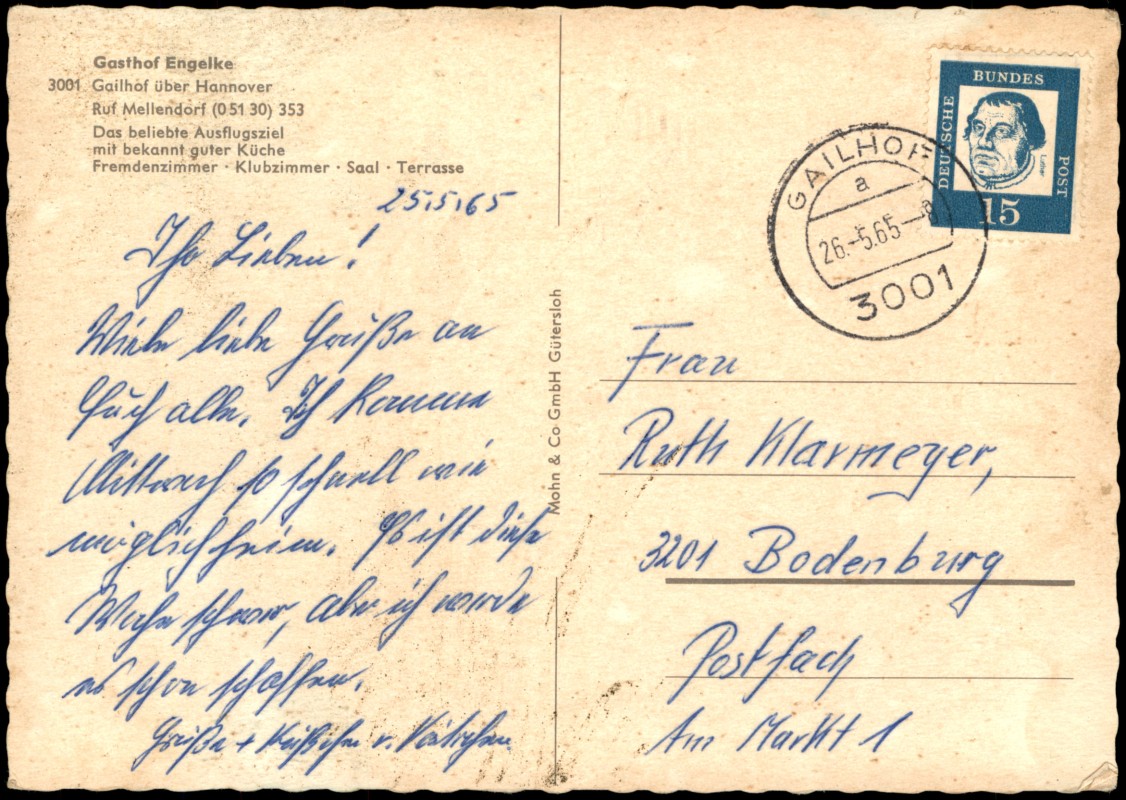 Gasthof Engelke
3001 Gailhof über Hannover
Ruf Mellendorf (0 51 30) 353
Das beliebte Ausflugsziel
mit bekannt guter Küche
Fremdenzimmer · Klubzimmer · Saal · Terrasse
25.5.65
Ihr Lieben!
Viele liebe Grüße an
Euch alle. Ich komme
Mittwoch so schnell wie
möglich heim. Es ist diese
Woche schwer, aber ich werde
es schon schaffen.
Grüße + Küßchen v.
Mohn & Co GmbH Gütersloh
DEUTSCHE
BUNDES
POST
Luther
15
GAILHOF
a
26.-5.65
3001
Frau
Ruth Klarmeyer,
3201 Bodenburg
Postfach
Am Markt 1